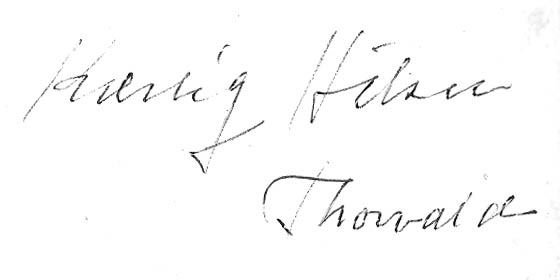 Kærlig Hilsen
Thorvald